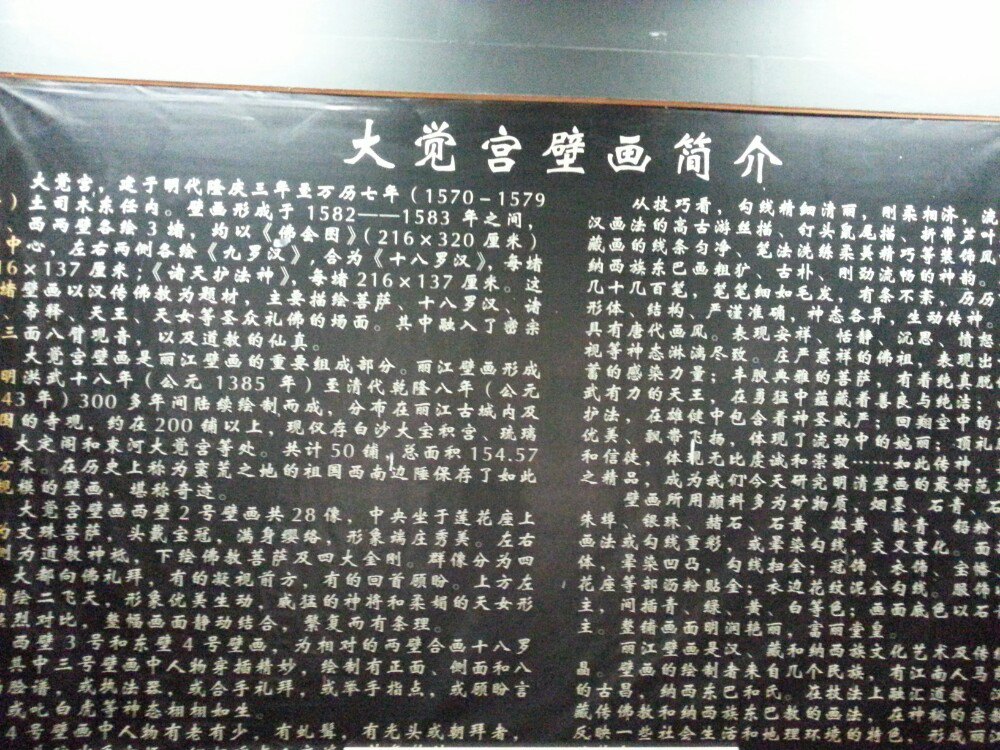 大觉宫壁画简介
大觉宫，建于明代隆庆三年至万历七年（1570－1579
）土司木东任内。壁画形成于 1582——1583 年之间，
西两壁各绘 3 堵，均以《佛会图》（216×320 厘米）
中心，左右两侧各绘《九罗汉》，合为《十八罗汉》，每堵
16×137 厘米；《诸天护法神》，每堵 216×137 厘米。这
堵壁画以汉传佛教为题材，主要描绘菩萨、十八罗汉、诸
帝释、天王、天女等圣众礼佛的场面。其中融入了密宗
三面八臂观音，以及道教的仙真。
大觉宫壁画是丽江壁画的重要组成部分。丽江壁画形成
明洪武十八年（公元 1385 年）至清代乾隆八年（公元
43 年）300 多年间陆续绘制而成，分布在丽江古城内及
围的寺观，约在 200 铺以上，现仅存白沙大宝积宫、琉璃
大定阁和束河大觉宫等处。共计 50 铺，总面积 154.57
方米。在历史上称为蛮荒之地的祖国西南边陲保存了如此
规模的壁画，堪称奇迹。
大觉宫壁画西壁 2 号壁画共 28 像，中央坐于莲花座上
为文殊菩萨，头戴宝冠，满身缨络，形象端庄秀美。左右
侧为道教神祗，下绘佛教菩萨及四大金刚。群像分为四
大都向佛礼拜，有的凝视前方，有的回首顾盼。上方左
绘二飞天，形象优美生动，威猛的神将和柔媚的天女形
烈对比，整幅画面静动结合，繁复而有条理。
西壁 3 号和东壁 4 号壁画，为相对的两壁合画十八罗
其中三号壁画中人物穿插精妙，绘制有正面、侧面和八
脸谱，或执法器，或合手礼拜，或举手指点，或顾盼言
或叱白虎等神态栩栩如生。
4 号壁画中人物有老有少，有虬髯，有无头或朝拜者，
从技巧看，勾线精细清丽，刚柔相济，流
汉画法的高古游丝描、钉头鼠尾描、折带芦叶
藏画的线条匀净、笔法洗练柔美精巧等装佛风
纳西族东巴画粗犷、古朴、刚劲流畅的神韵。
几十几百笔，笔笔细如毛发，有条不紊，历历
形体、结构，严谨准确，神态各异，生动传神。
具有唐代画风。表现安祥、恬静、沉思、愤怒
视等神态淋漓尽致。庄严慈祥的佛祖，表现出
蓄的感染力量；丰腴典雅的菩萨，有着纯真脱
武有力的天王，在勇狂中蕴藏着善良与纯洁；
护法，在雄健中包含着神圣威严；回翔空中的
优美、飘带飞扬，体现了流动中的婉丽；顶礼
和信徒，体现无比虔诚和崇敬……如此传神，
之精品，成为我们今天研究明清壁画的最好范
壁画所用颜料多为矿物质，烟墨、石青、石
朱璋、银珠、赭石、石黄、雄黄、散青、铅粉
画法或勾线重彩，或晕染勾线，交叉重化。面
体，晕染凹凸，勾线扫金；冠饰、衣饰、宝幡
花座等部沥粉贴金；衣边花纹泥金勾线。服饰
主，间插青、绿、黄、白等色；画面底色以石
主。整铺画面明润艳丽，富丽堂皇。
丽江壁画是汉、藏和纳西族文化艺术及传
昌。壁画的绘制者来自几个民族，有江南人马
的古昌，纳西东巴和氏。在技法上融汇道教、
藏传佛教和纳西族东巴教的画法，在神秘的宗
反映一些社会生活和地理环境的特色，形成丽